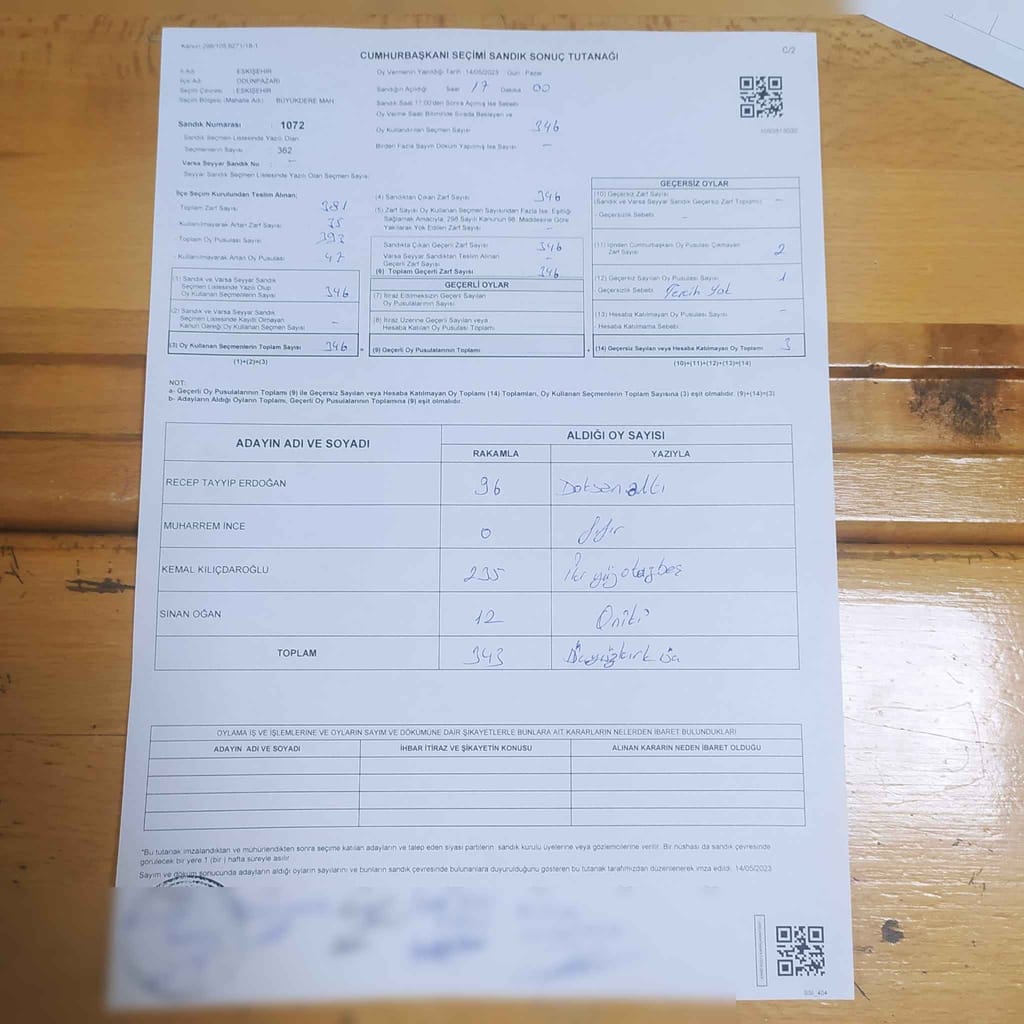 Kanun 298/105,6271/18-1
C/2
CUMHURBAŞKANI SEÇİMİ SANDIK SONUÇ TUTANAĞI
İl Adı : ESKİŞEHİR
İlçe Adı : ODUNPAZARI
Seçim Çevresi : ESKİŞEHİR
Seçim Bölgesi (Mahalle Adı) : BÜYÜKDERE MAH.
Oy Vermenin Yapıldığı Tarih : 14/05/2023 Gün : Pazar
Sandığın Açıldığı Saat 17 Dakika 00
Sandık Saat 17:00'den Sonra Açılmış İse Sebebi
Oy Verme Saati Bitiminde Sırada Bekleyen ve
Oy Kullandırılan Seçmen Sayısı 346
Birden Fazla Sayım Döküm Yapılmış İse Sayısı -
Sandık Numarası : 1072
Sandık Seçmen Listesinde Yazılı Olan
Seçmenlerin Sayısı : 362
Varsa Seyyar Sandık No : -
Seyyar Sandık Seçmen Listesinde Yazılı Olan Seçmen Sayısı:
İlçe Seçim Kurulundan Teslim Alınan;
Toplam Zarf Sayısı 381
Kullanılmayarak Artan Zarf Sayısı 35
Toplam Oy Pusulası Sayısı 393
Kullanılmayarak Artan Oy Pusulası 47
(1) Sandık ve Varsa Seyyar Sandık
Seçmen Listesinde Yazılı Olup
Oy Kullanan Seçmenlerin Sayısı 346
(2) Sandık ve Varsa Seyyar Sandık
Seçmen Listesinde Kayıtlı Olmayan
Kanun Gereği Oy Kullanan Seçmen Sayısı -
(3) Oy Kullanan Seçmenlerin Toplam Sayısı 346
(1)+(2)=(3)
(4) Sandıktan Çıkan Zarf Sayısı 346
(5) Zarf Sayısı Oy Kullanan Seçmen Sayısından Fazla İse, Eşitliği
Sağlamak Amacıyla, 298 Sayılı Kanunun 98. Maddesine Göre
Yakılarak Yok Edilen Zarf Sayısı -
Sandıkta Çıkan Geçerli Zarf Sayısı 346
Varsa Seyyar Sandıktan Teslim Alınan
Geçerli Zarf Sayısı -
(6) Toplam Geçerli Zarf Sayısı 346
GEÇERLİ OYLAR
(7) İtiraz Edilmeksizin Geçerli Sayılan
Oy Pusulalarının Sayısı
(8) İtiraz Üzerine Geçerli Sayılan veya
Hesaba Katılan Oy Pusulası Toplamı
(9) Geçerli Oy Pusulalarının Toplamı
GEÇERSİZ OYLAR
(10) Geçersiz Zarf Sayısı
(Sandık ve Varsa Seyyar Sandık Geçersiz Zarf Toplamı) -
- Geçersizlik Sebebi -
(11) İçinden Cumhurbaşkanı Oy Pusulası Çıkmayan
Zarf Sayısı 2
(12) Geçersiz Sayılan Oy Pusulası Sayısı 1
- Geçersizlik Sebebi Tercih Yok
(13) Hesaba Katılmayan Oy Pusulası Sayısı -
- Hesaba Katılmama Sebebi
(14) Geçersiz Sayılan veya Hesaba Katılmayan Oy Toplamı 3
(10)+(11)+(12)+(13)=(14)
NOT:
a- Geçerli Oy Pusulalarının Toplamı (9) ile Geçersiz Sayılan veya Hesaba Katılmayan Oy Toplamı (14) Toplamları, Oy Kullanan Seçmenlerin Toplam Sayısına (3) eşit olmalıdır. (9)+(14)=(3)
b- Adayların Aldığı Oyların Toplamı, Geçerli Oy Pusulalarının Toplamına (9) eşit olmalıdır.
ADAYIN ADI VE SOYADI
ALDIĞI OY SAYISI
RAKAMLA YAZIYLA
RECEP TAYYIP ERDOĞAN 96 Doksan altı
MUHARREM İNCE 0 Sıfır
KEMAL KILIÇDAROĞLU 235 İki yüz otuz beş
SİNAN OĞAN 12 Oniki
TOPLAM 343 Üçyüzkırk üç
OYLAMA İŞ VE İŞLEMLERİNE VE OYLARIN SAYIM VE DÖKÜMÜNE DAİR ŞİKAYETLERLE BUNLARA AİT KARARLARIN NELERDEN İBARET BULUNDUKLARI
ADAYIN ADI VE SOYADI İHBAR İTİRAZ VE ŞİKAYETİN KONUSU ALINAN KARARIN NEDEN İBARET OLDUĞU
*Bu tutanak imzalandıktan ve mühürlendikten sonra seçime katılan adayların ve talep eden siyasi partilerin sandık kurulu üyelerine veya gözlemcilerine verilir. Bir nüshası da sandık çevresinde
görülecek bir yere 1 (bir ) hafta süreyle asılır.
Sayım ve döküm sonucunda adayların aldığı oyların sayılarını ve bunların sandık çevresinde bulunanlara duyurulduğunu gösteren bu tutanak tarafımızdan düzenlenerek imza edildi. 14/05/2023